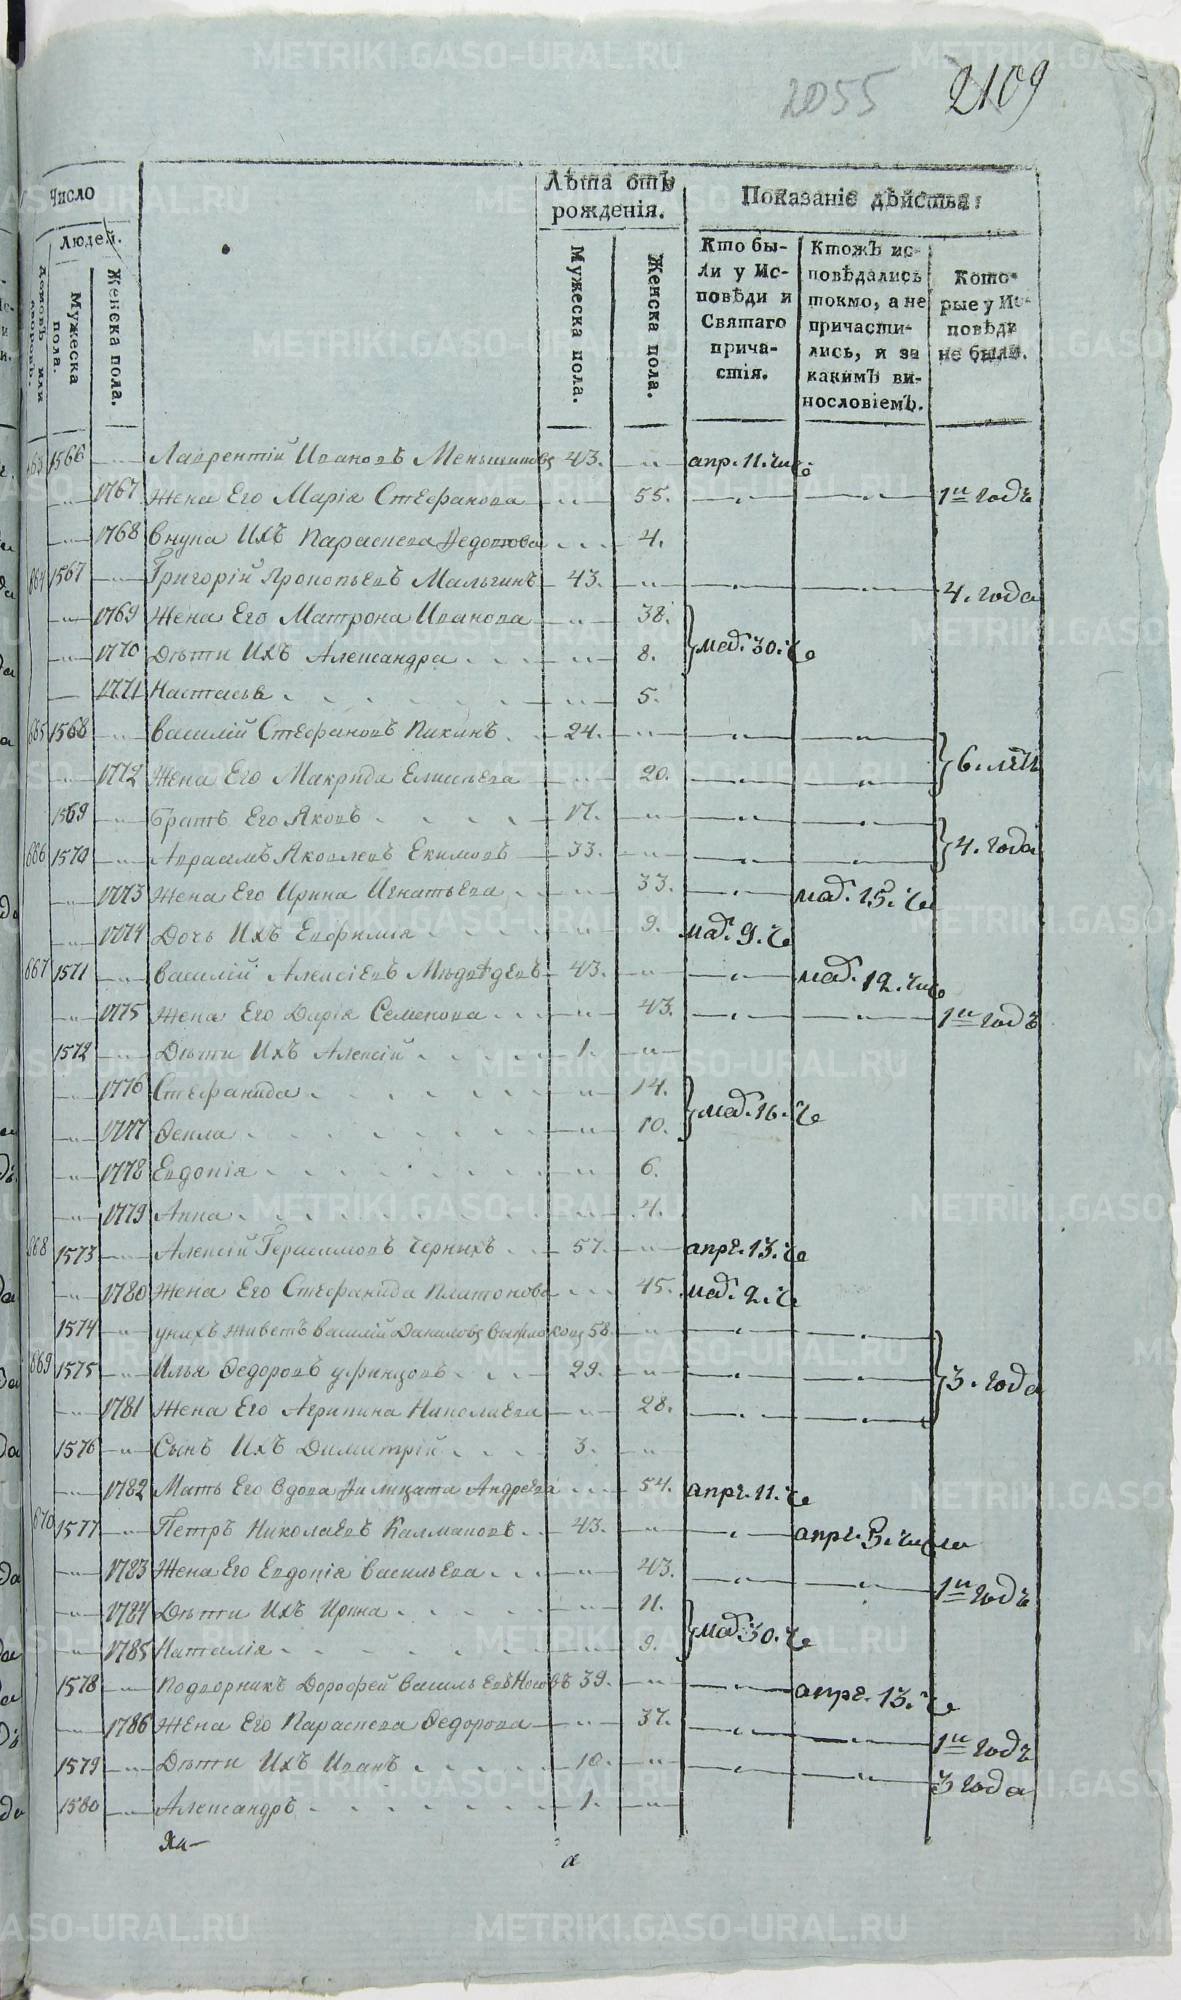 2055 2109
Число
Людей.
Мужеска пола.
Женска пола.
Лѣта отъ рожденія.
Мужеска пола.
Женска пола.
Показаніе дѣйства:
Кто были у Исповѣди и Святаго причастія.
Ктожъ исповѣдались токмо, а не причастились, и за какимъ винословіемъ.
Которые у Исповѣди не были.
663 1566 Лаврентій Ивановъ Меньшиковъ 43. апр. 11. чис
1767 Жена Его Марія Стефанова 55. 1й годъ
1768 Внука Ихъ Параскева Федотова 4.
664 1567 Григорій Прокопьевъ Мальгинъ 43. 4. года
1769 Жена Его Матрона Иванова 38.
1770 Дѣти Ихъ Александра 8. мад. 30. че
1771 Настасья 5.
665 1568 Василій Стефановъ Пикинъ 24.
1772 Жена Его Макрида Елисѣева 20. 6. лѣтъ
1569 Братъ Его Яковъ 17.
666 1570 Авраамъ Яковлевъ Екимовъ 33. 4. года
1773 Жена Его Ирина Игнатьева 33. мад. 15. че
1774 Дочь Ихъ Евфимія 9. мад. 9. че
667 1571 Василій Алексіевъ Мѣдвѣдевъ 43. мад. 12. чис
1775 Жена Его Дарія Семенова 43. 1й годъ
1572 Дѣти Ихъ Алексій 1.
1776 Стефанида 14.
1777 Ѳекла 10. мад. 16. че
1778 Евдокія 6.
1779 Анна 4.
668 1573 Алексій Герасимовъ Черныхъ 57. апре. 13. че
1780 Жена Его Стефанида Платонова 45. мад. 2. че
1574 у нихъ живетъ Василій Даниловъ 58.
669 1575 Илья Ѳедоровъ Уфинцовъ 29. 3. года
1781 Жена Его Агрипина Николаева 28.
1576 Сынъ Ихъ Димитрій 3.
1782 Мать Его вдова Андреева 54. апре. 11. че
670 1577 Петръ Николаевъ Калмаковъ 43. апре. 5. числа
1783 Жена Его Евдокія Васильева 43. 1й годъ
1784 Дѣти Ихъ Ирина 11.
1785 Наталія 9. мад. 30. че
1578 Подворникъ Дорофей Васильевъ Носовъ 39. апре. 13. че
1786 Жена Его Параскева Ѳедорова 37. 1й годъ
1579 Дѣти Ихъ Иванъ 10. 3 года
1580 Александръ 1.
METRIKI.GASO-URAL.RU